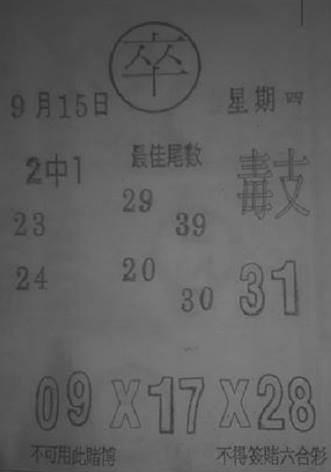 卒
9月15日 星期四
2中1 最佳尾數
29
23 39
24 20
30 31
09 X 17 X 28
不可用此賭博 不得簽賭六合彩